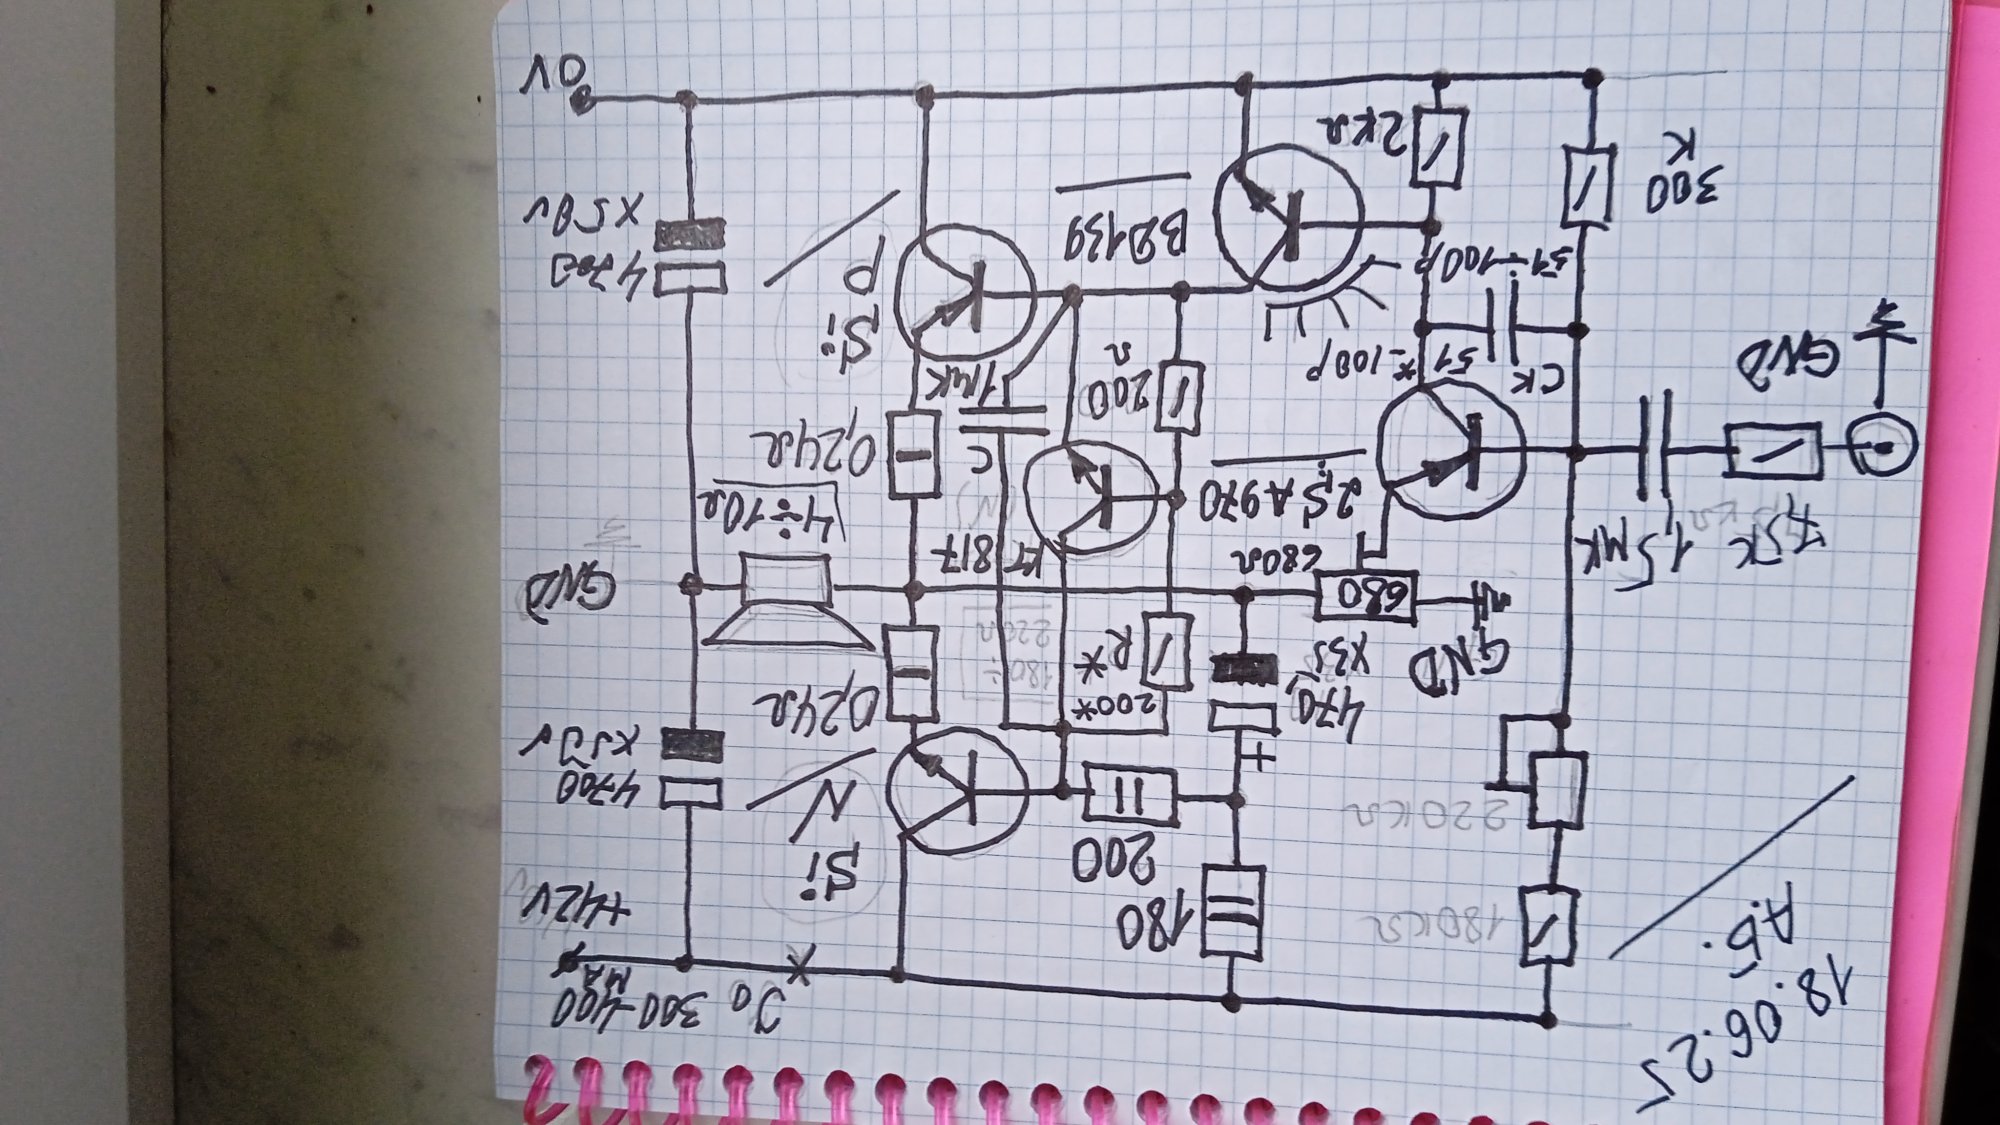 18.06.25
А.Б.
J0 300-400
MA
+42V
4700
x50v
Si
N
180
200
180KΩ
220KΩ
+
470,
x35
200*
R*
180÷
220Ω
0,24Ω
GND
GND
680
680Ω
КТ
817
4÷10Ω
0,24Ω
C
1MK
2SA970
1,5MK
7,5K
GND
CK
51
*-100p
51÷100p
200
Ω
Si
P
4700
x50v
BD139
2KΩ
300
K
0V